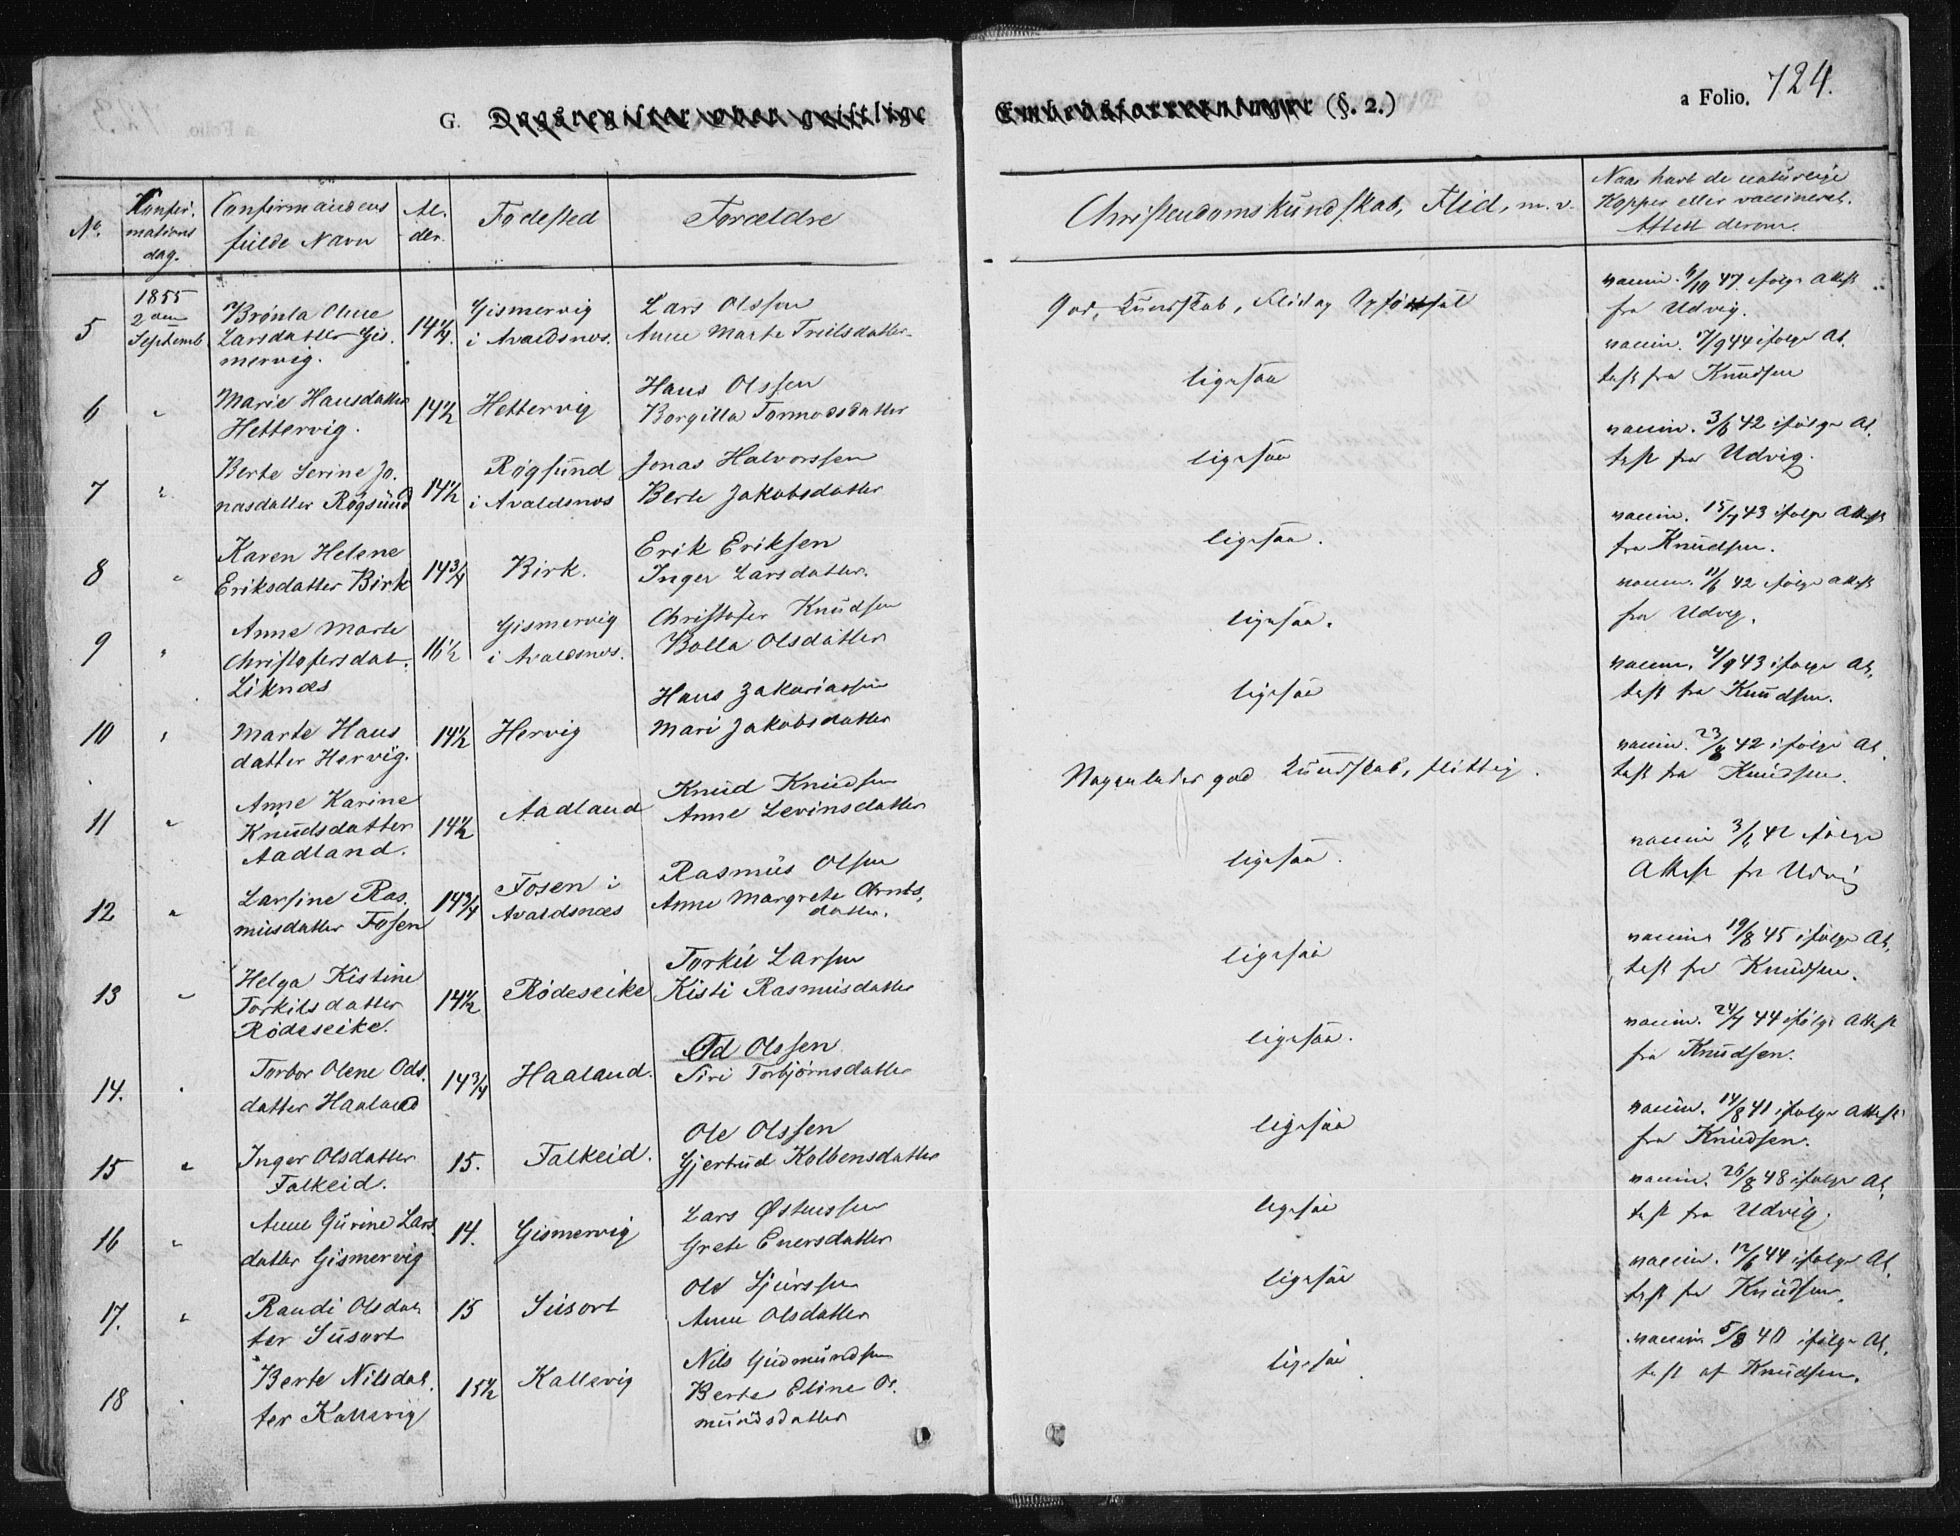 G. Dagsregister over geistlige Embedsforretninger (§. 2.)
a Folio. 724.
No.
Konfir-
mations
dag.
Confirmandens
fulde Navn
Al-
der.
Fødested
Forældre
Christendomskundskab, Flid, m. v.
Naar havt de naturlige
Kopper eller vaccineret.
Attest derom.
5
1855
2den
Septemb.
Brønla Oline
Larsdatter Gis.
mervig.
14¼.
Gismervig
i Avaldsnes.
Lars Olssen
Anne Marte Trulsdatter
God Kundskab, Flid og Opførsel
vaccin. 6/10 47 ifølge Attest
fra Udvig.
6
"
Marie Hansdatter
Hettervig.
14½
Hettervig
Hans Olssen
Borgilla Tormodsdatter
ligesaa
vaccin. 7/9 44 ifølge At.
test fra Knudsen
7
"
Berte Serine Jo.
nasdatter Røgsund
14½
Røgsund
i Avaldsnes
Jonas Halvorssen
Berte Jakobsdatter
ligesaa
vaccin. 3/6 42 ifølge At.
test fra Udvig.
8
"
Karen Helene
Eriksdatter Birk
14¾
Birk.
Erik Eriksen
Inger Larsdatter.
ligesaa.
vaccin. 15/7 43 ifølge Attest
fra Knudsen.
9
"
Anne Marte
Christofersdat.
Liknæs
16½
Gismervig
i Avaldsnes.
Christofer Knudsen
Bolla Olsdatter
ligesaa.
vaccin. 11/6 42 ifølge Attest
fra Udvig.
10
"
Marte Hans
datter Hervig.
14½
Hervig
Hans Zakariassen
Mari Jakobsdatter
ligesaa
vaccin. 4/9 43 ifølge At.
test fra Knudsen.
11
"
Anne Karine
Knudsdatter
Aadland.
14½
Aadland
Knud Knudsen
Anne Levinsdatter
Nogenledes god Kundskab, flittig.
vaccin. 23/8 42 ifølge At.
test fra Knudsen.
12
"
Larsine Ras.
musdatter Fosen
14¾
Fosen i
Avaldsnæs
Rasmus Olsen
Anne Margrete Arnts.
datter.
ligesaa.
vaccin 3/6 42 ifølge
Attest fra Udvig
13
"
Helga Kistine
Torkilsdatter
Rødeseike.
14½
Rødeseike
Torkil Larsen
Kisti Rasmusdatter
ligesaa
vaccin. 19/8 45 ifølge At.
test fra Knudsen.
14.
"
Torbor Olene Ods.
datter Haaland
14¾
Haaland.
Od Olssen
Siri Torbjørnsdatter
ligesaa.
vaccin. 24/7 44 ifølge Attest
fra Knudsen.
15
"
Inger Olsdatter
Falkeid.
15.
Falkeid.
Ole Olssen
Gjertrud Kolbensdatter
ligesaa
vaccin. 14/8 41 ifølge Attest
fra Knudsen.
16
"
Anne Gurine Lars
datter Gismervig
14.
Gismervig
Lars Østenssen
Grete Enersdatter
ligesaa
vaccin. 26/8 48 ifølge At.
test fra Udvig.
17.
"
Randi Olsdat
ter Susort
15
Susort
Ole Sjurssen
Anne Olsdatter
ligesaa
vaccin. 12/6 44 ifølge At.
test fra Knudsen.
18
"
Berte Nilsdat.
ter Kallevig
15½
Kallevig
Nils Gudmundsen
Berte Eline Os.
mundsdatter
ligesaa
vaccin. 5/8 40 ifølge At.
test af Knudsen.